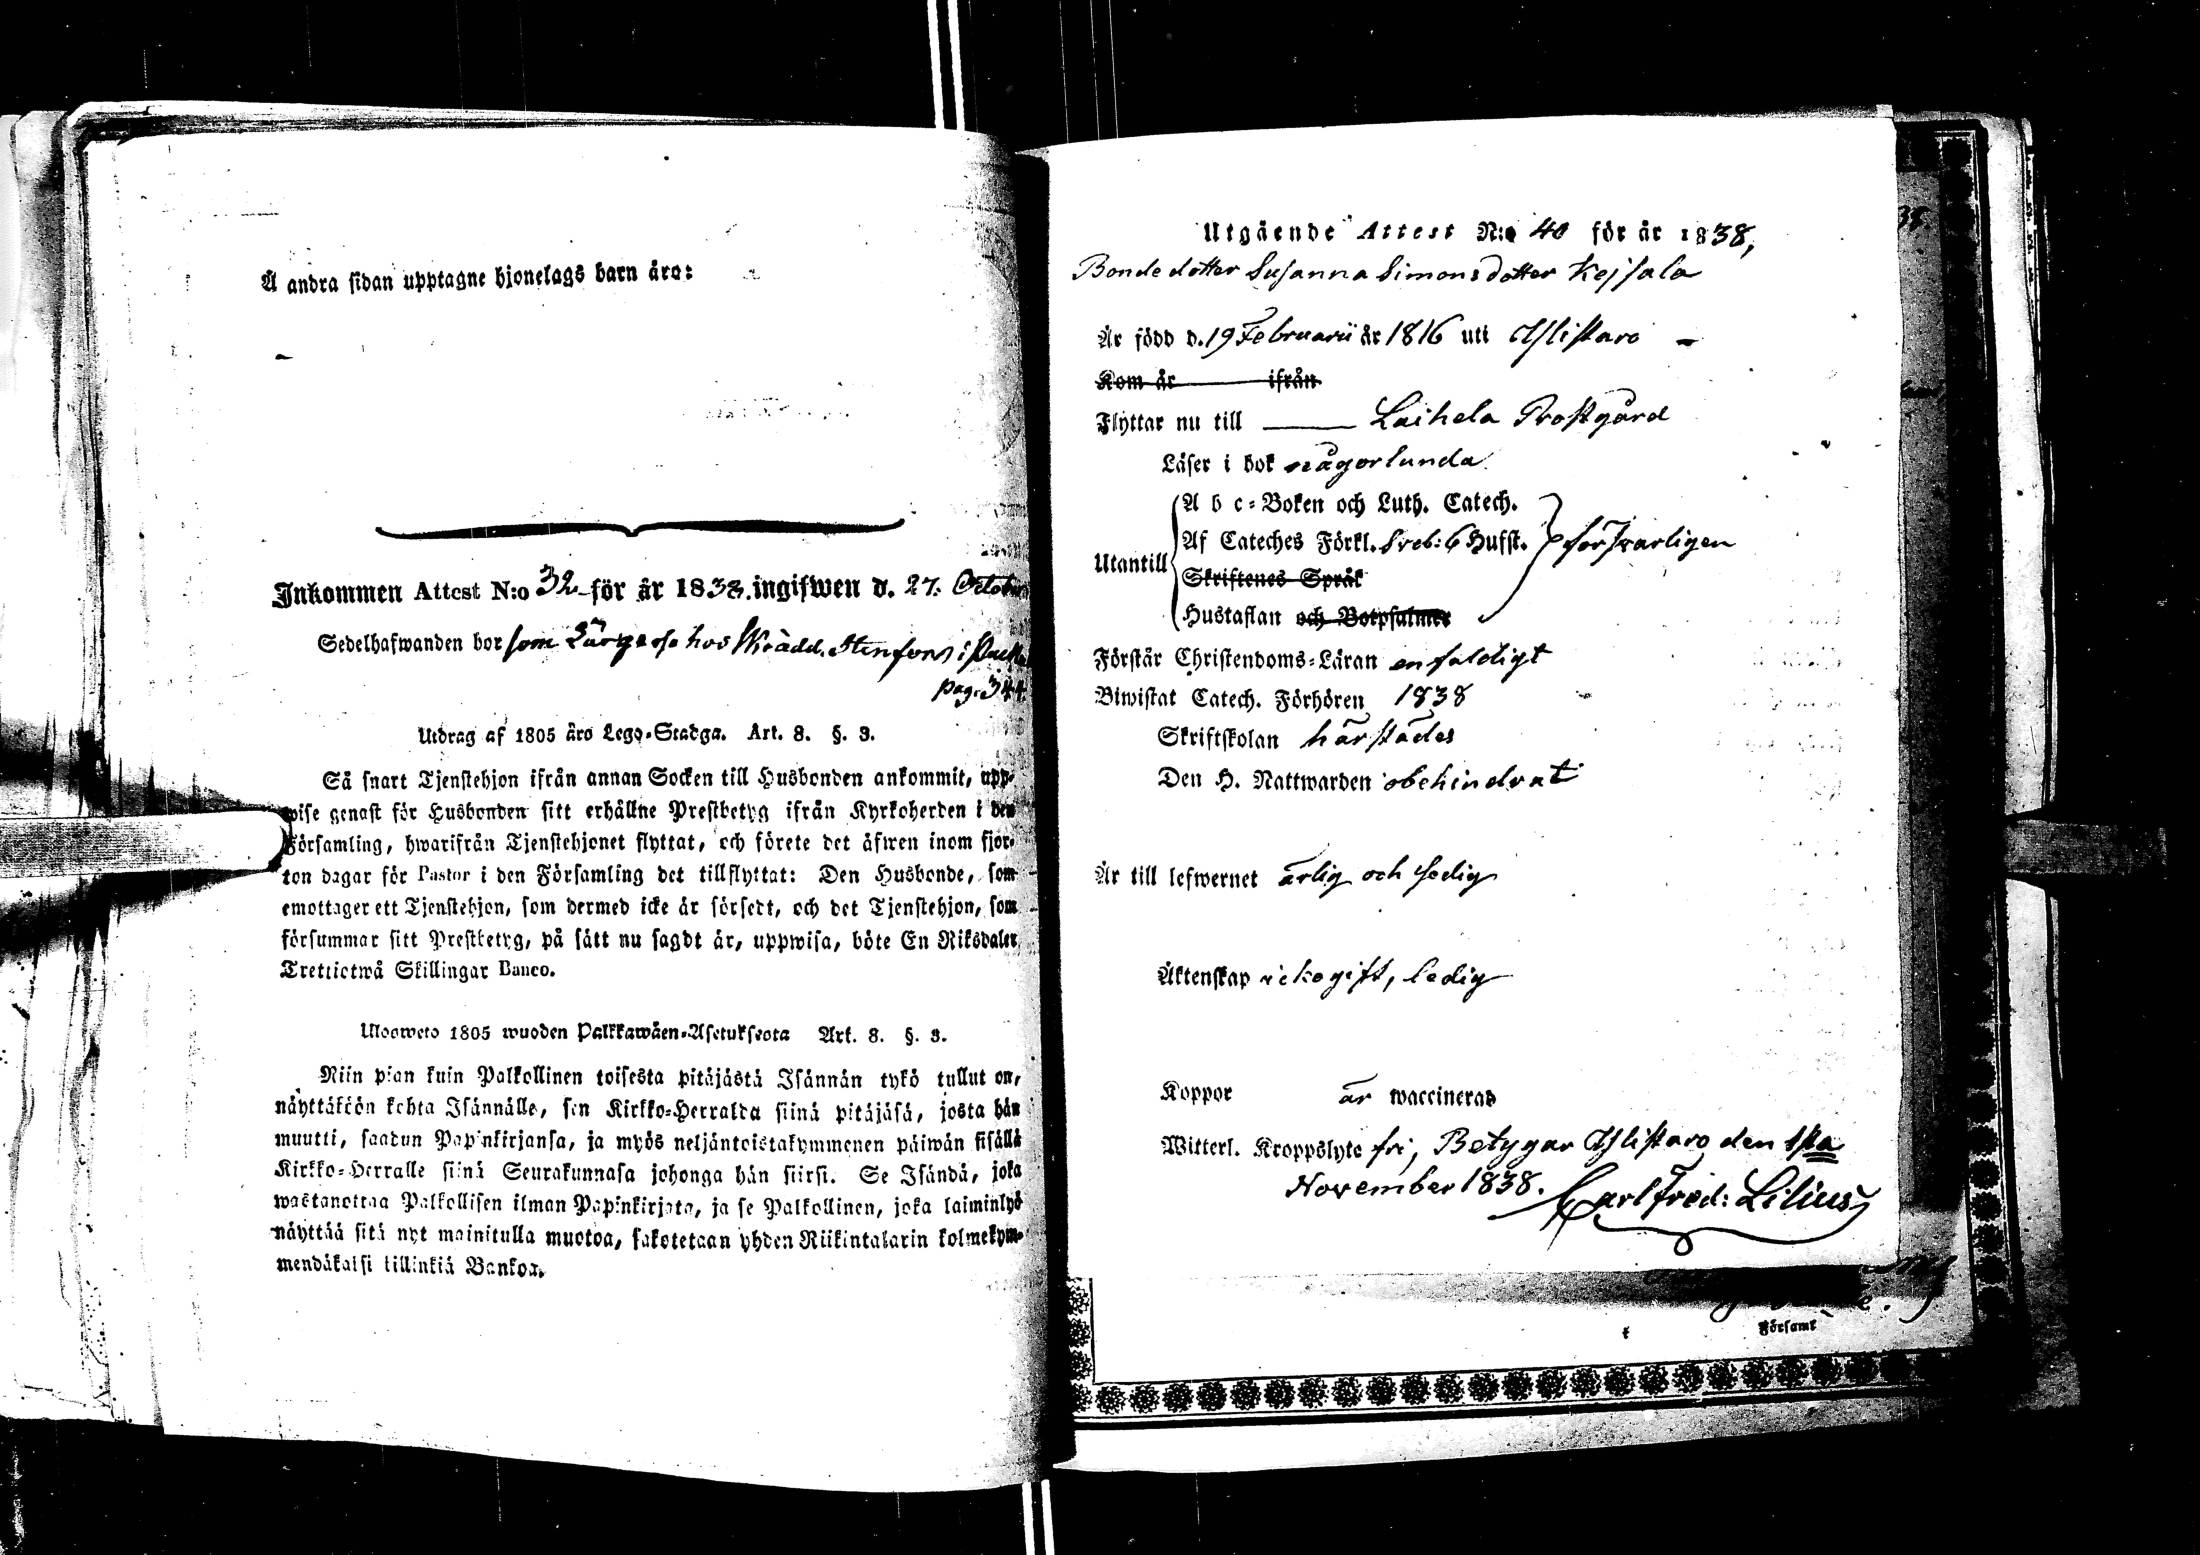 Å andra sidan upptagne hjonelags barn äro:
Inkommen Attest N:o 32 för år 1838. ingifwen d. 27. October
Sedelhafwanden bor som Lärgosse hos Skrädd. Stenfors i
pag. 344.
Utdrag af 1805 års Lego-Stadga. Art. 8. §. 3.
Så snart Tjenstehjon ifrån annan Socken till Husbonden ankommit, upp-
wise genast för Husbonden sitt erhållne Prestbetyg ifrån Kyrkoherden i den
Församling, hwarifrån Tjenstehjonet flyttat, och förete det äfwen inom fjor-
ton dagar för Pastor i den Församling det tillflyttat: Den Husbonde, som
emottager ett Tjenstehjon, som dermed icke är försedt, och det Tjenstehjon, som
försummar sitt Prestbetyg, på sätt nu sagdt är, uppwisa, böte En Riksdaler
Trettiotwå Skillingar Banco.
Ulosweto 1805 wuoden Palkkawäen-Asetuksesta Art. 8. §. 3.
Niin pian kuin Palkollinen toisesta pitäjästä Isännän tykö tullut on,
näyttäköön kohta Isännälle, sen Kirkko-Herralda siinä pitäjäsä, josta hän
muutti, saadun Papinkirjansa, ja myös neljäntoistakymmenen päiwän sisällä
Kirkko-Herralle siinä Seurakunnasa johonga hän siirsi. Se Isändä, joka
wastanottaa Palkollisen ilman Papinkirjata, ja se Palkollinen, joka laiminlyö
näyttää sitä nyt mainitulla muotoa, sakotetaan yhden Riikintalarin kolmekym-
mendäkaksi killinkiä Bankoa.
Utgående Attest N:o 40 för år 1838,
Bondedotter Susanna Simonsdotter Kejsala
Är född d. 19 Februarii år 1816 uti Ylistaro
Kom år ifrån
Flyttar nu till Laihela Prostgård
Läser i bok någorlunda
A b c-Boken och Luth. Catech.
Af Cateches Förkl. Sveb: 6 Hufst. försvarligen
Utantill
Skriftenes Språk
Hustaflan och Botpsalmer
Förstår Christendoms-Läran enfaldigt
Biwistat Catech. Förhören 1838
Skriftskolan härstädes
Den H. Nattwarden obehindrat
Är till lefwernet ärlig och sedig
Äktenskap icke gift, ledig
Koppor är waccinerad
Witterl. Kroppslyte fri, Betygar Ylistaro den 1sta
November 1838. Carl Fred: Lilius
Församl